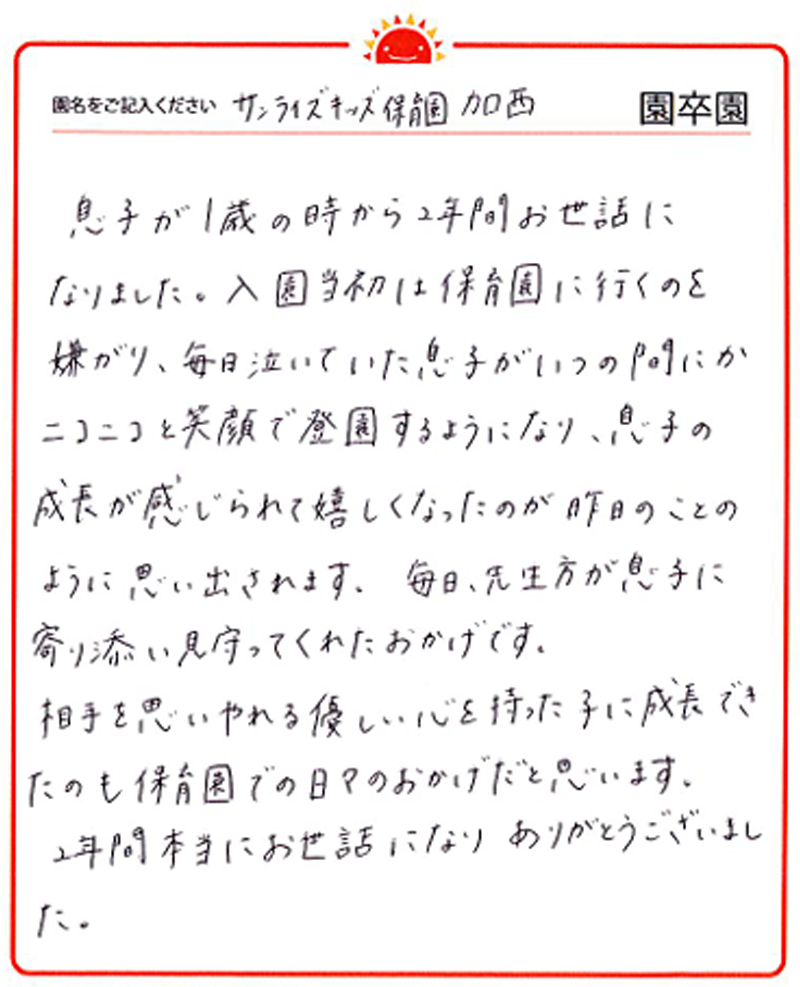 園名をご記入ください サンライズキッズ保育園 加西 園卒園
息子が1歳の時から2年間お世話に
なりました。入園当初は保育園に行くのを
嫌がり、毎日泣いていた息子がいつの間にか
ニコニコと笑顔で登園するようになり、息子の
成長が感じられて嬉しくなったのが昨日のことの
ように思い出されます。 毎日、先生方が息子に
寄り添い見守ってくれたおかげです。
相手を思いやれる優しい心を持った子に成長でき
たのも保育園での日々のおかげだと思います。
2年間本当にお世話になりありがとうございまし
た。